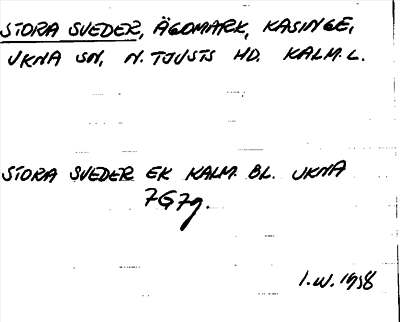 STORA SVEDER, ÄGOMARK, KASINGE,
UKNA SN, N. TJUSTS HD. KALM. L.
STORA SVEDER EK KALM. BL. UKNA
7G7g.
I.W. 1958